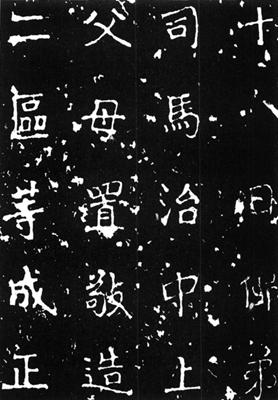 十八日佛弟
司馬治中上
父母置敬造
二區等成正